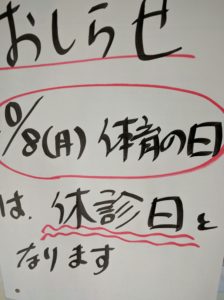 おしらせ
10/8(月)体育の日
は、休診日と
なります